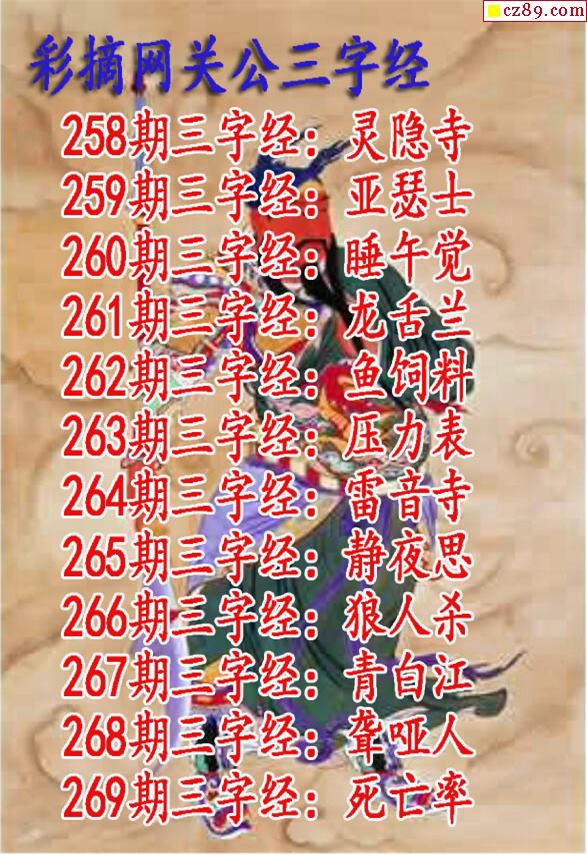 cz89.com
彩摘网关公三字经
258期三字经：灵隐寺
259期三字经：亚瑟士
260期三字经：睡午觉
261期三字经：龙舌兰
262期三字经：鱼饲料
263期三字经：压力表
264期三字经：雷音寺
265期三字经：静夜思
266期三字经：狼人杀
267期三字经：青白江
268期三字经：聋哑人
269期三字经：死亡率